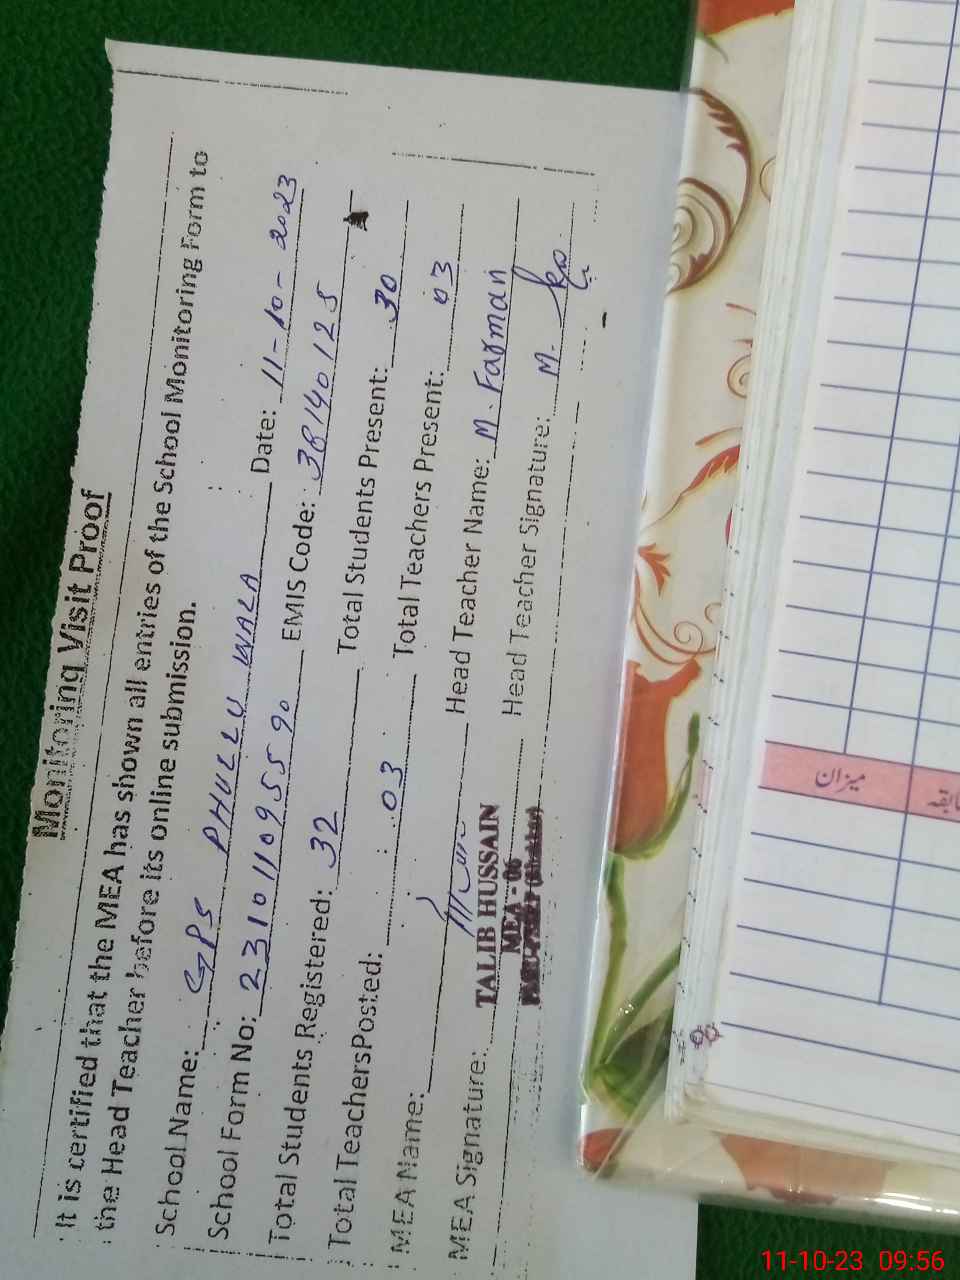 Monitoring Visit Proof
It is certified that the MEA has shown all entries of the School Monitoring Form to
the Head Teacher before its online submission.
School Name: GPS PHULLU WALA Date: 11-10-2023
School Form No: 2310110955590 EMIS Code: 38140125
Total Students Registered: 32 Total Students Present: 30
Total TeachersPosted: 03 Total Teachers Present: 03
MEA Name: Head Teacher Name: M. Farman
MEA Signature: Head Teacher Signature: M.
TALIB HUSSAIN
MEA - 06
میزان
11-10-23 09:56